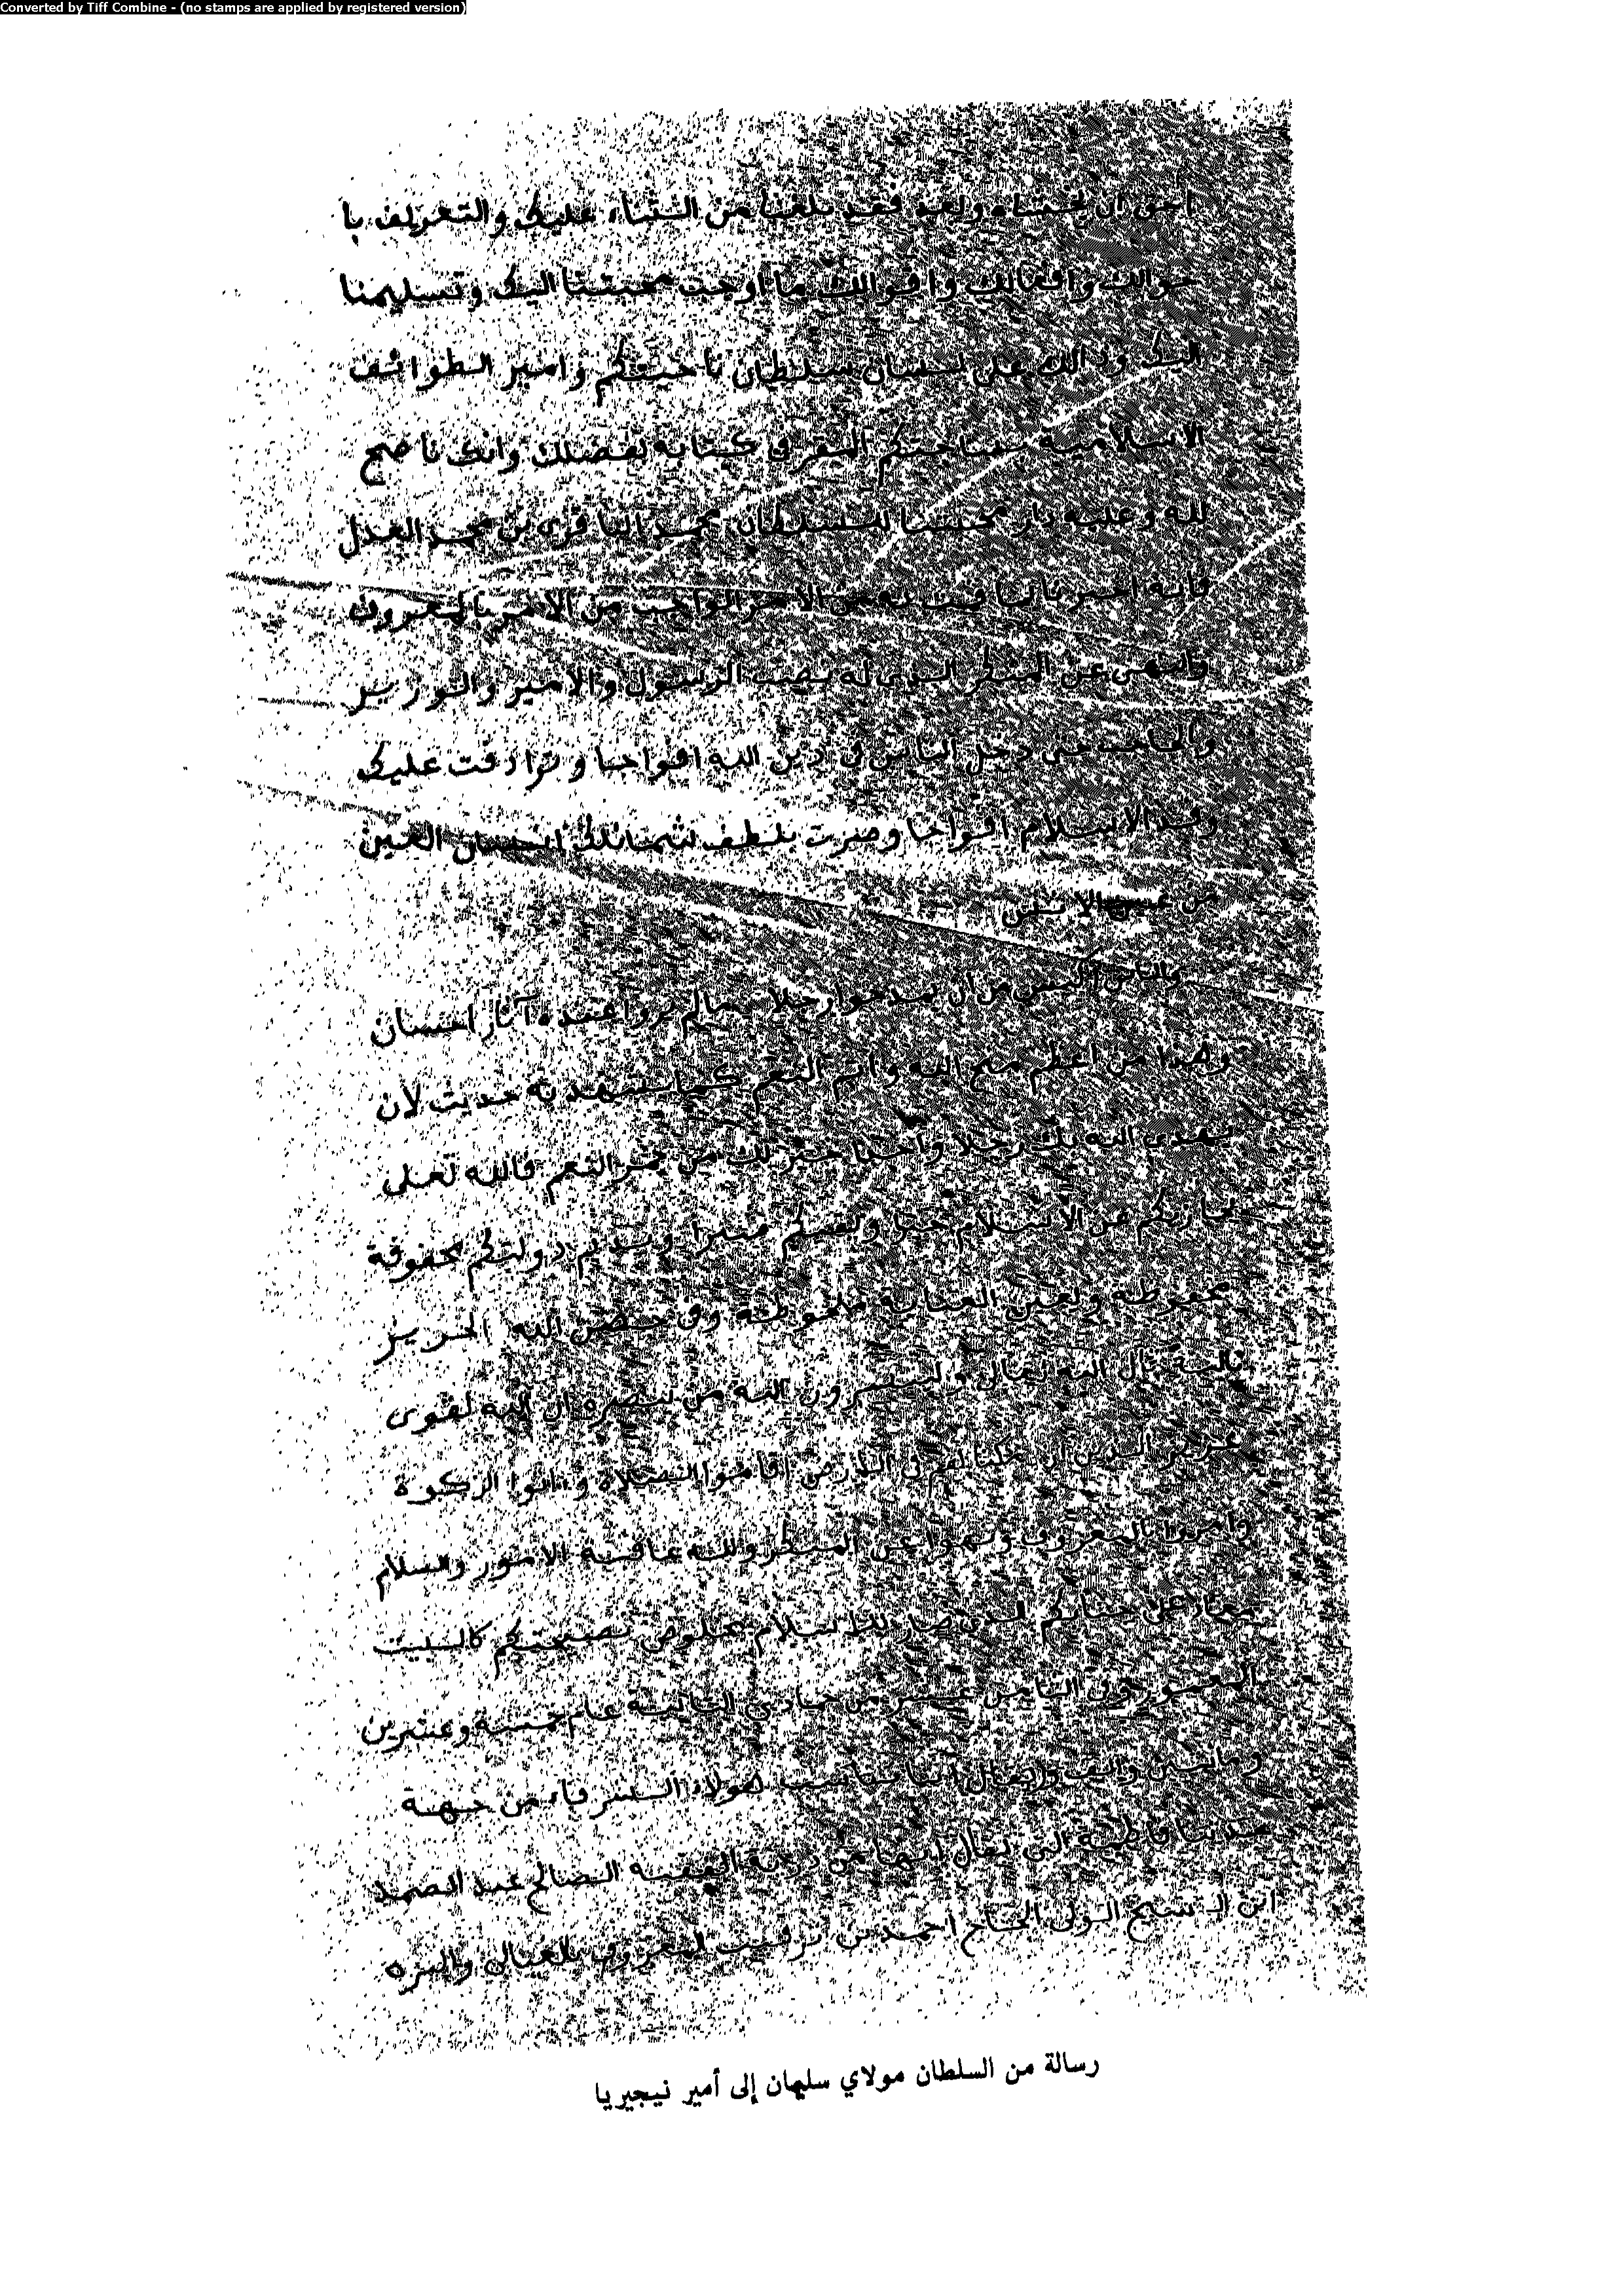 Converted by Tiff Combine - (no stamps are applied by registered version)
أحق أن تخشاه وبعد فقد بلغنا من الثناء عليك والتعريف با
حوالك وافعالك واقوالك ما اوجب محبتنا اليك وتسليمنا
اليك وذالك على لسان سلطان ناحيتكم وامير الطوائف
الاسلامية المقر في كتابه بفضلك وانك ناصح
لله وعليه دار محبنا السلطان محمد الباقري بن محمد العدل
فانه اخبرنا من الامر الواجب من الامر بالمعروف
والنهي عن المنكر الذي له نصب الرسول والامير والوزير
والحاجب حتى دخل الناس في دين الله افواجا وترادفت عليك
وفد الاسلام افواجا وصرت بلطف شمائلك الحسان العين
من عين الانس
والناس اكيس من ان يمدحوا رجلا مالم يروا عنده آثار احسان
وهذا من اعظم منح الله وأتم النعم كما يشهد به حديث لان
يهدى الله بك رجلا واحدا خير لك من حمر النعم فالله تعلى
يجازيكم عن الاسلام خيرا ويديم دولتكم محفوفة
محفوظة وبعين العناية ملحوظة وفي حصن الله الحريز
قال الله تعالى ولينصرون الله من ينصره ان الله لقوى
عزيز الذين ان مكناهم في الارض اقاموا الصلاة وءاتوا الزكوة
وامروا بالمعروف ونهوا عن المنكر ولله عاقبة الامور والسلام
معاد على جنابكم الذي صار للاسلام بخلوص نصيحتكم كالبيت
المعمور وفي الثامن عشر من جمادى الثانية عام خمسة وعشرين
ومائتين والف ويقال هولاء الشرفاء من جهة
جدتنا فاطمة التى يقال انها من ذرية الفقيه الصالح عبد الصمد
ابن الشيخ الولى الحاج احمد بن المعروف
رسالة من السلطان مولاي سليمان إلى أمير نيجيريا